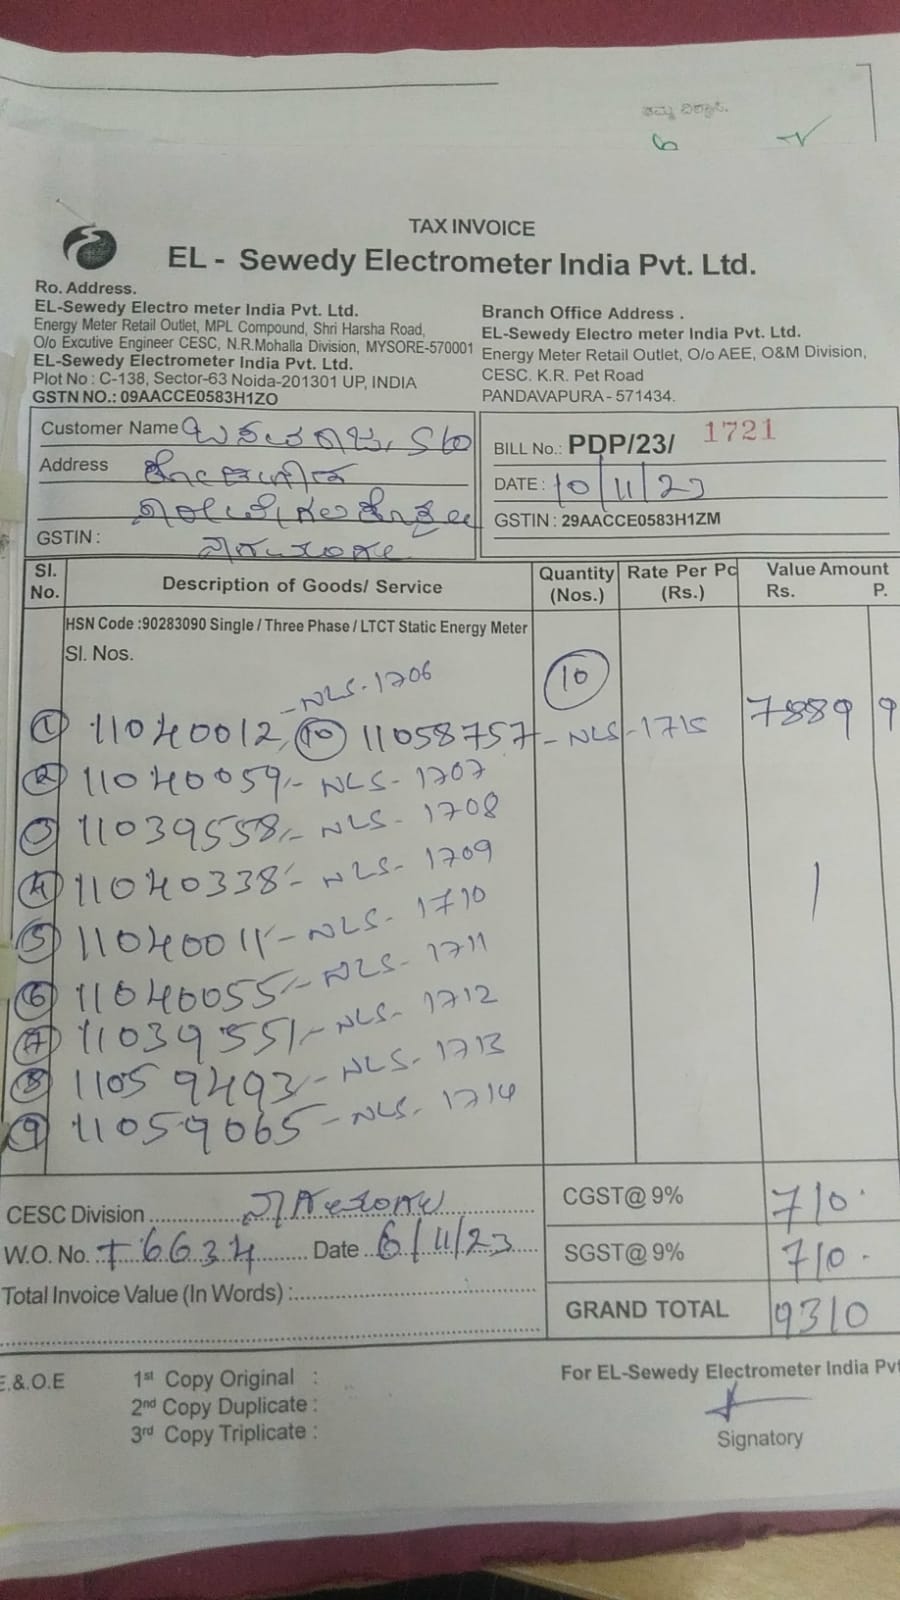 ತಮ್ಮ ವಿಶ್ವಾಸಿ.
TAX INVOICE
EL - Sewedy Electrometer India Pvt. Ltd.
Ro. Address.
EL-Sewedy Electro meter India Pvt. Ltd.
Energy Meter Retail Outlet, MPL Compound, Shri Harsha Road,
O/o Excutive Engineer CESC, N.R.Mohalla Division, MYSORE-570001
EL-Sewedy Electrometer India Pvt. Ltd.
Plot No : C-138, Sector-63 Noida-201301 UP, INDIA
GSTN NO.: 09AACCE0583H1ZO
Branch Office Address .
EL-Sewedy Electro meter India Pvt. Ltd.
Energy Meter Retail Outlet, O/o AEE, O&M Division,
CESC. K.R. Pet Road
PANDAVAPURA - 571434.
Customer Name
Address
GSTIN :
BILL No.: PDP/23/ 1721
DATE : 10/11/23
GSTIN : 29AACCE0583H1ZM
Sl. No. Description of Goods/ Service Quantity (Nos.) Rate Per Pc (Rs.) Value Amount Rs. P.
HSN Code :90283090 Single / Three Phase / LTCT Static Energy Meter
Sl. Nos.
10
① 11040012 - NLS-1706 ⑩ 11058757 - NLS-1715 7889 9
② 11040059 - NLS-1707
③ 11039558 - NLS-1708
④ 11040338 - NLS-1709
⑤ 11040011 - NLS-1710
⑥ 11040055 - NLS-1711
⑦ 11039551 - NLS-1712
⑧ 11059493 - NLS-1713
⑨ 11059065 - NLS-1714
CESC Division ನಾಗಮಂಗಲ
W.O. No. 76634 Date 6/11/23
Total Invoice Value (In Words) :
CGST@ 9% 710.
SGST@ 9% 710.
GRAND TOTAL 9310
E.&.O.E
1st Copy Original :
2nd Copy Duplicate :
3rd Copy Triplicate :
For EL-Sewedy Electrometer India Pvt
Signatory